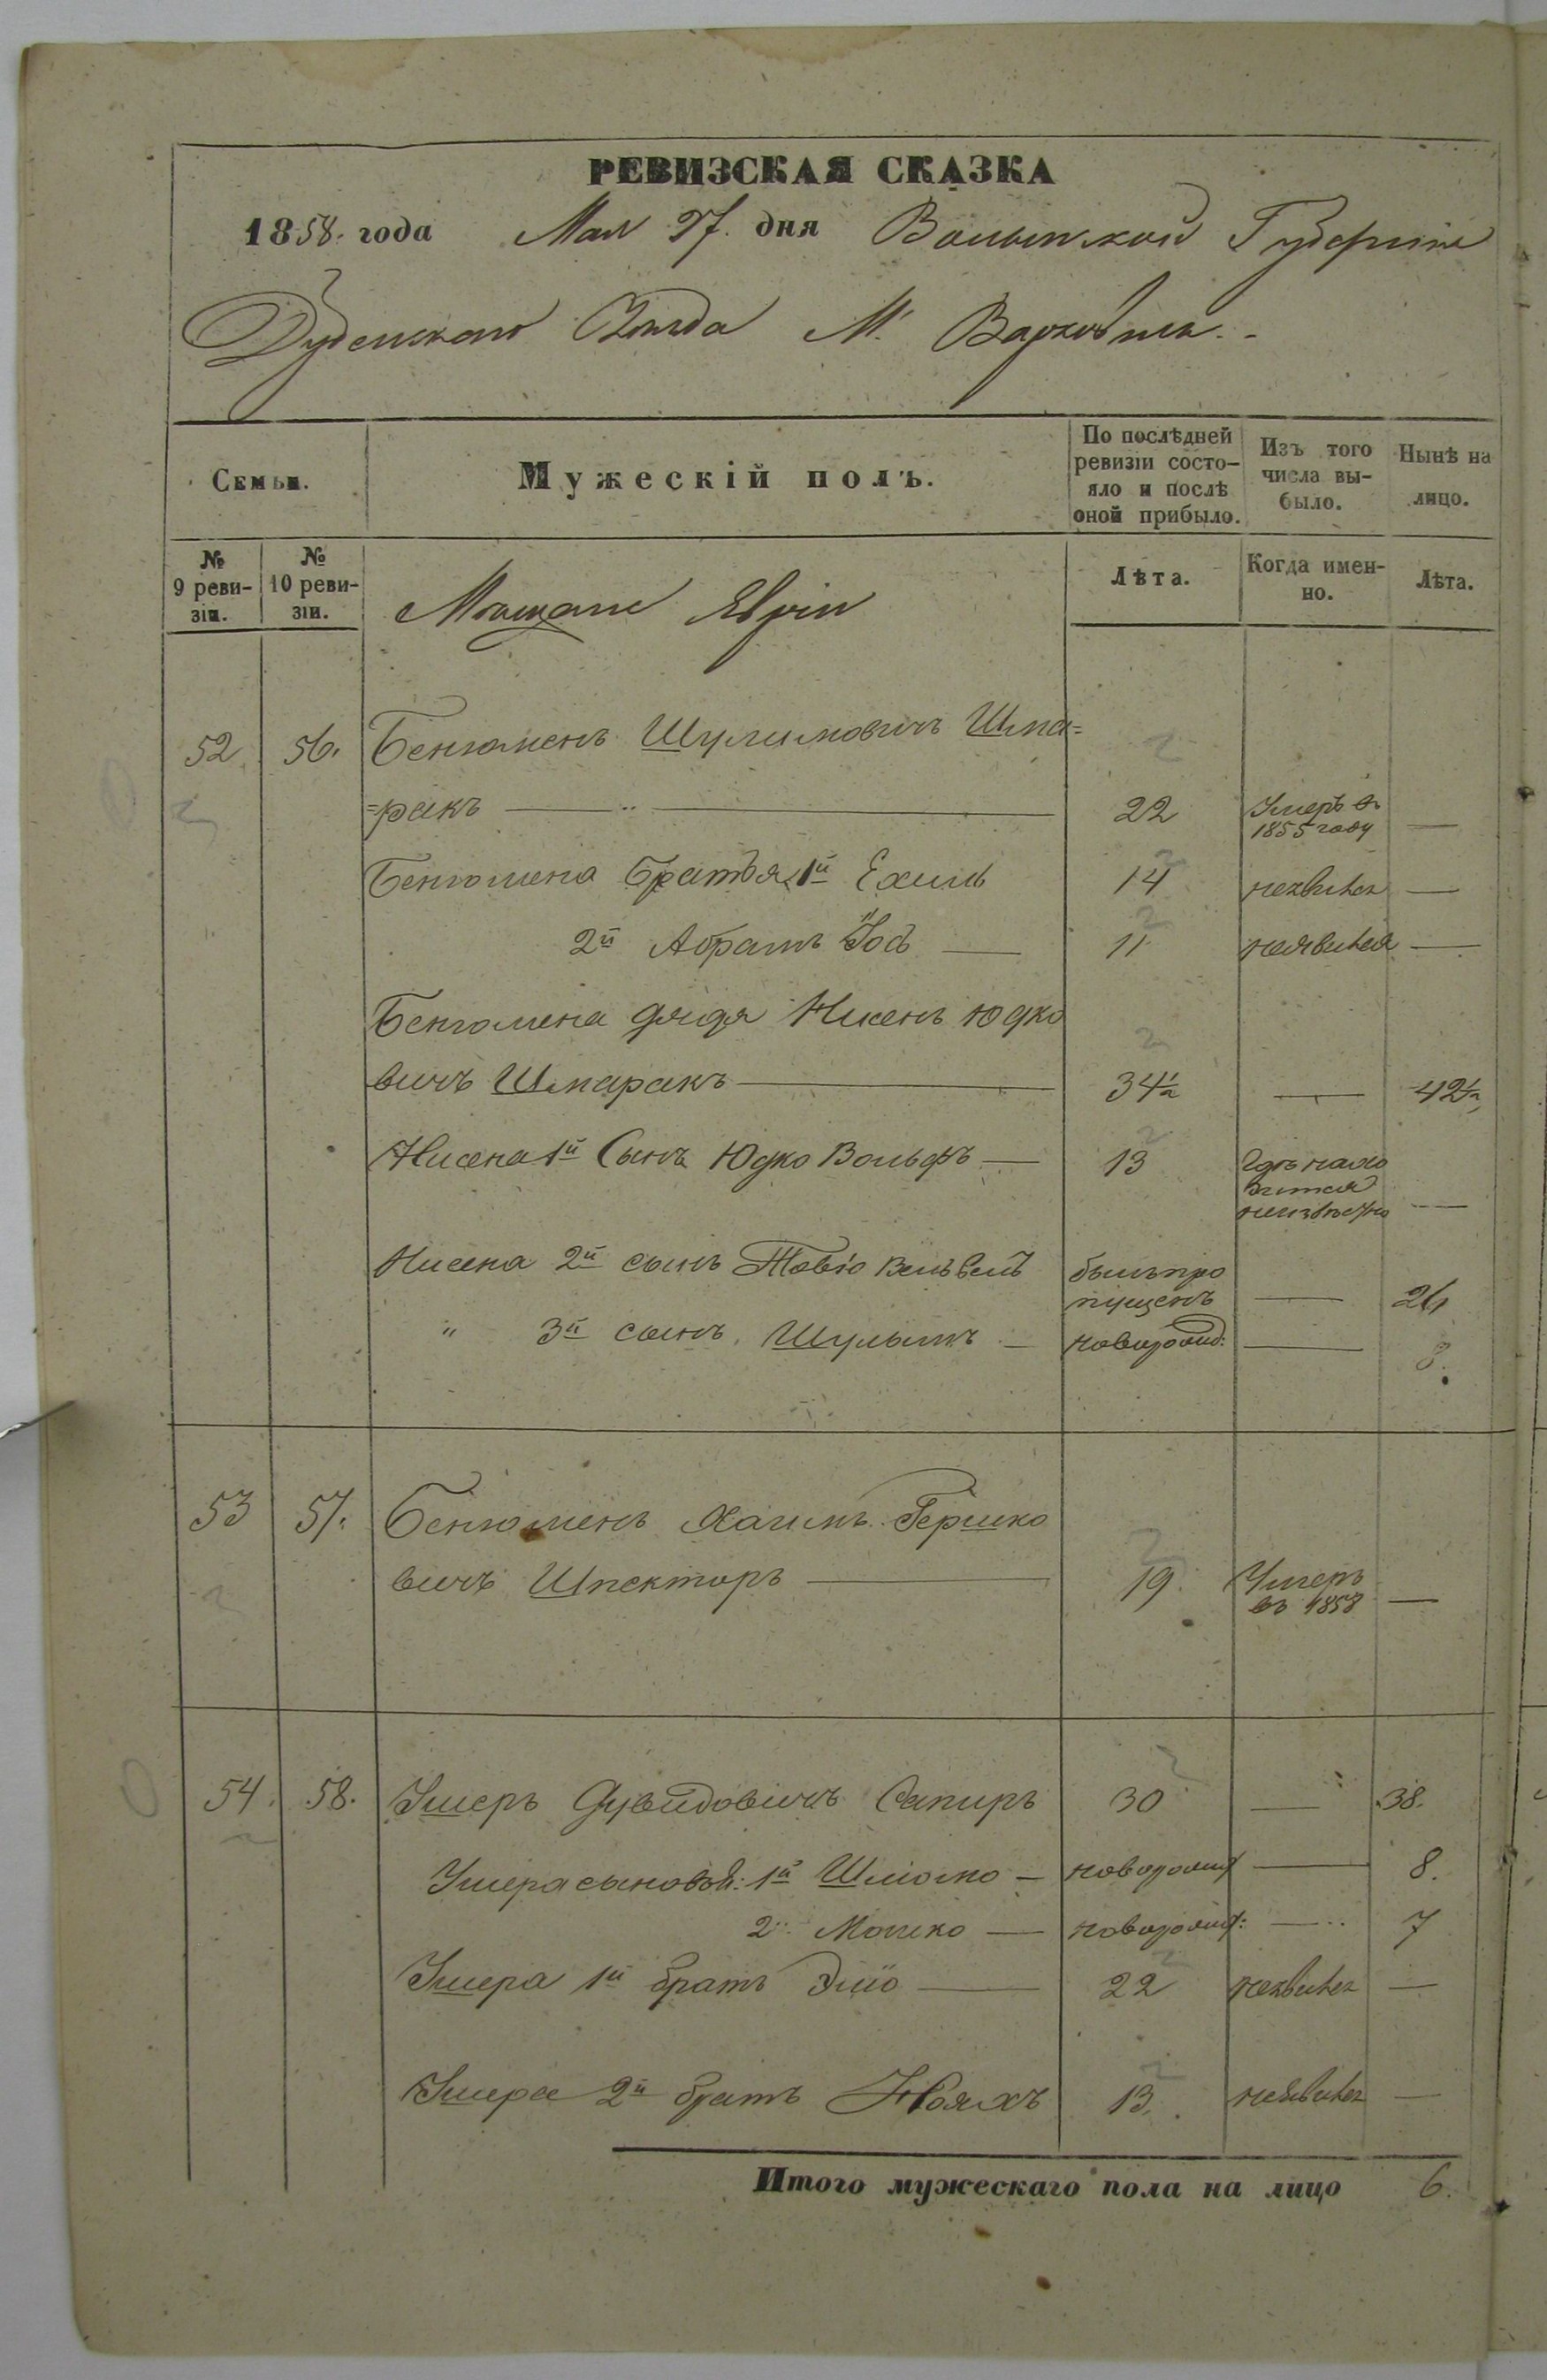 РЕВИЗСКАЯ СКАЗКА
1858. года Мая 27. дня Волынской Губернiи
Дубенскаго Уѣзда М. Варковичь.
Семьи.
Мужескiй полъ.
По послѣдней ревизiи состо-
яло и послѣ оной прибыло.
Изъ того числа вы-
было.
Нынѣ на лицо.
№ 9 реви-
зiи.
№ 10 реви-
зiи.
Мѣщане Евреи
Лѣта.
Когда имен-
но.
Лѣта.
52. 56. Бенюменъ Шулимовичъ Шма=
=ракъ 22 Умеръ въ 1855 году —
Бенюмена братья 1й Ехиль 14 неявился —
2й Абрамъ Іосъ — 11 неявился —
Бенюмена дядя Нисенъ Юдко
вичъ Шмаракъ 34½ — 42½
Нисена 1й Сынъ Юдко Вольфъ — 13 гдѣ нахо
дится
неизвѣстно —
Нисена 2й сынъ Товiо Вельвель былъ про
пущенъ — 26
" 3й сынъ Шулымъ — новорожд: — 8.
53 57. Бенюменъ Хаимъ Гершко
вичъ Шпекторъ 19. Умеръ
въ 1858 —
54. 58. Ушеръ Дувидовичъ Сапиръ 30 — 38.
Ушера сыновья: 1й Шлiомо — новорожд — 8.
2й Мошко — новорожд: — 7
Ушера 1й братъ Элiо — 22 неявился —
Ушера 2й братъ Нояхъ 13. неявился —
Итого мужескаго пола на лицо 6.